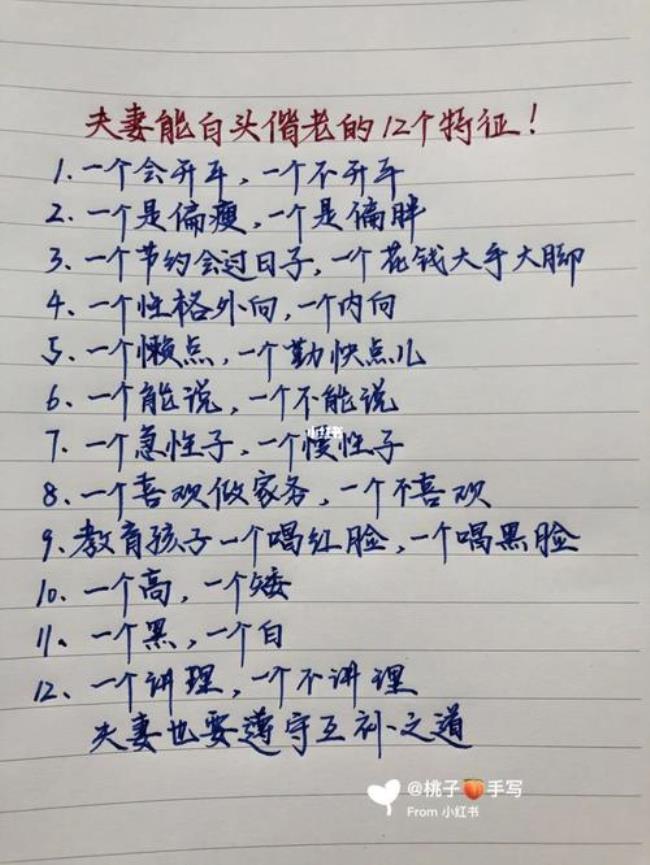 夫妻能白头偕老的12个特征！
1.一个会开车，一个不开车
2.一个是偏瘦，一个是偏胖
3、一个节约会过日子，一个花钱大手大脚
4、一个性格外向，一个内向
5、一个懒点，一个勤快点儿
6、一个能说，一个不能说
7、一个急性子，一个慢性子
小红书
8、一个喜欢做家务，一个不喜欢
9、教育孩子一个唱红脸，一个唱黑脸
10、一个高，一个矮
11、一个黑，一个白
12、一个讲理，一个不讲理
夫妻也要遵守互补之道
@桃子🍑手写
From 小红书